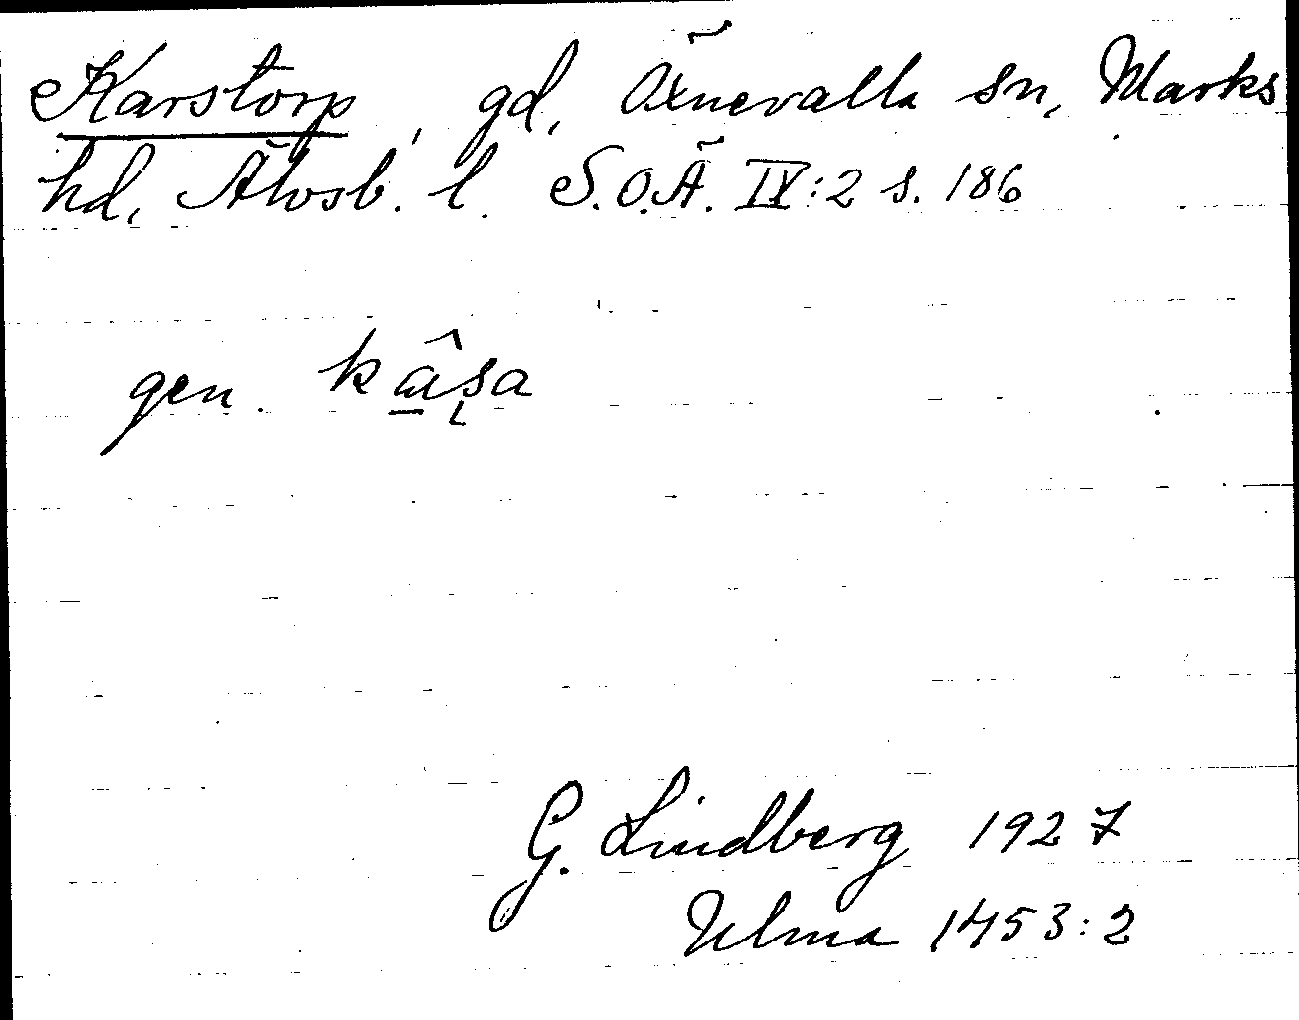 Karstorp, gd, Öxnevalla sn, Marks
hd, Älvsb. l. S.O.Ä. IX:2 s. 186
gen. kâ̠ʂa
G. Lindberg 1927
Ulma 1453:2